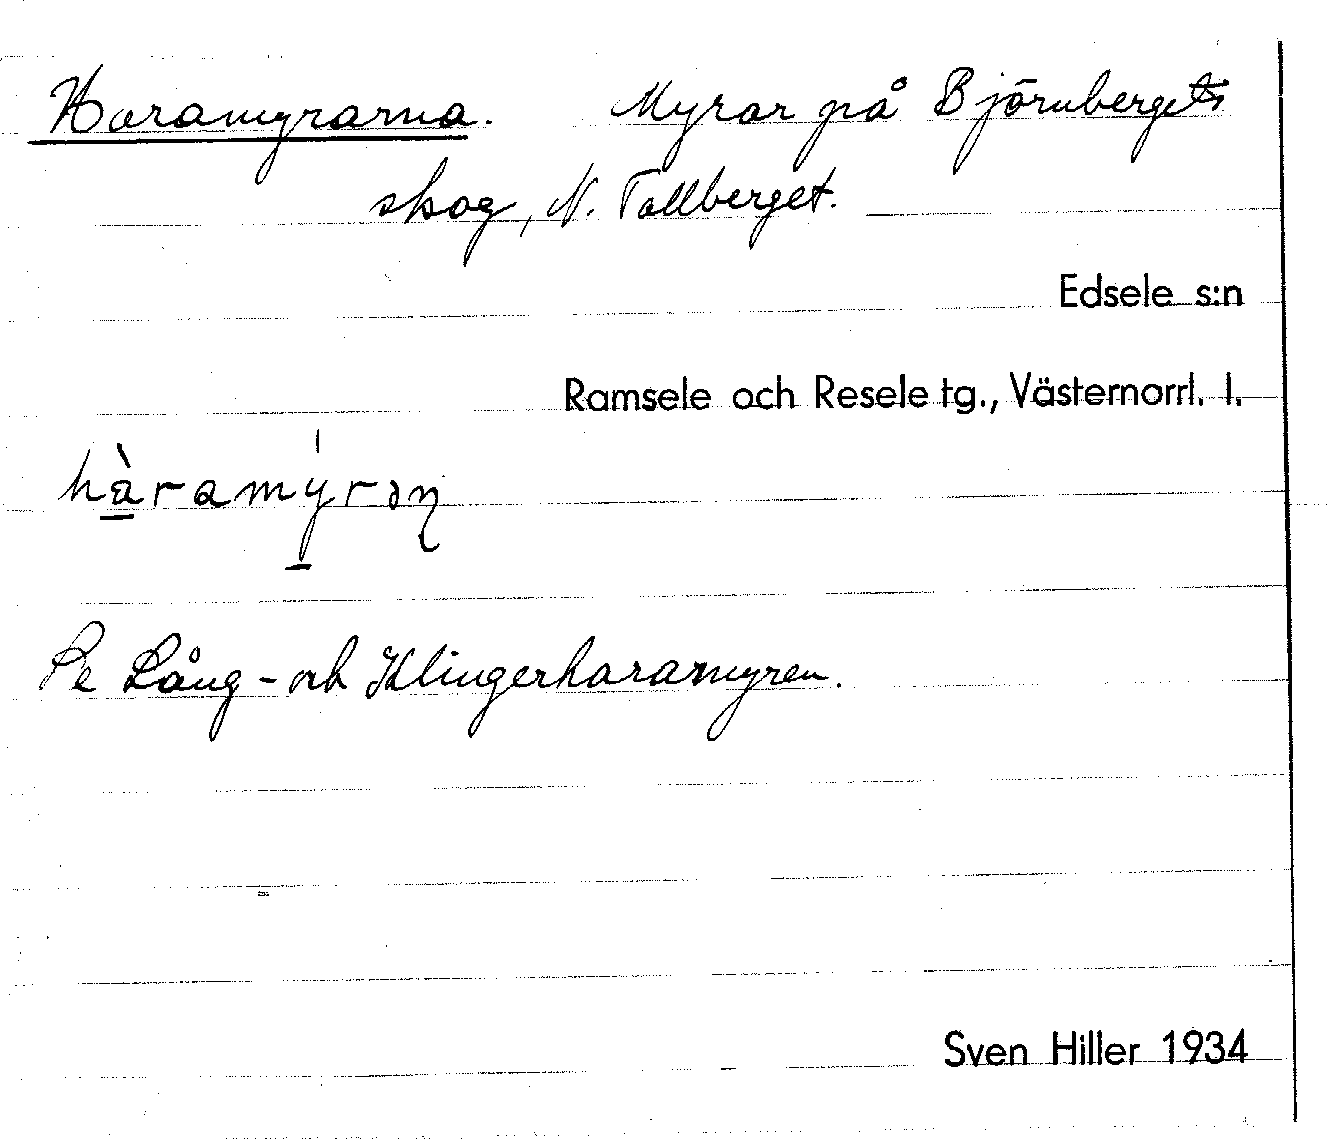 Haramyrarna. Myrar på Björnbergets
skog, N. Tallberget.
Edsele s:n
Ramsele och Resele tg., Västernorrl. l.
hàramýrəɳ
Se Lång- och Klingerharamyren.
Sven Hiller 1934